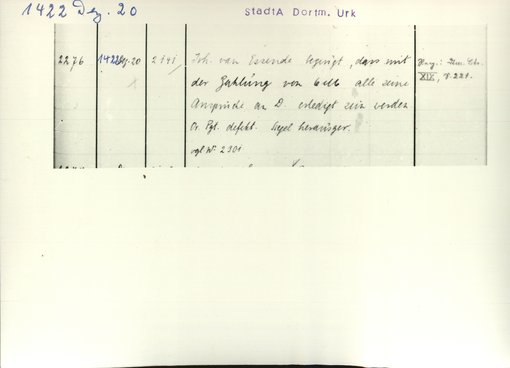 1422 Dez. 20
StadtA Dortm. Urk
2276
1422 Dez. 20
2191
Joh. van Essende bezeugt, dass mit
der Zahlung von 6 alle seine
Ansprüche an D. erledigt sein werden
Or. Pgt. defekt. Siegel herausger.
vgl. Nr. 2301
XIX, S. 221.